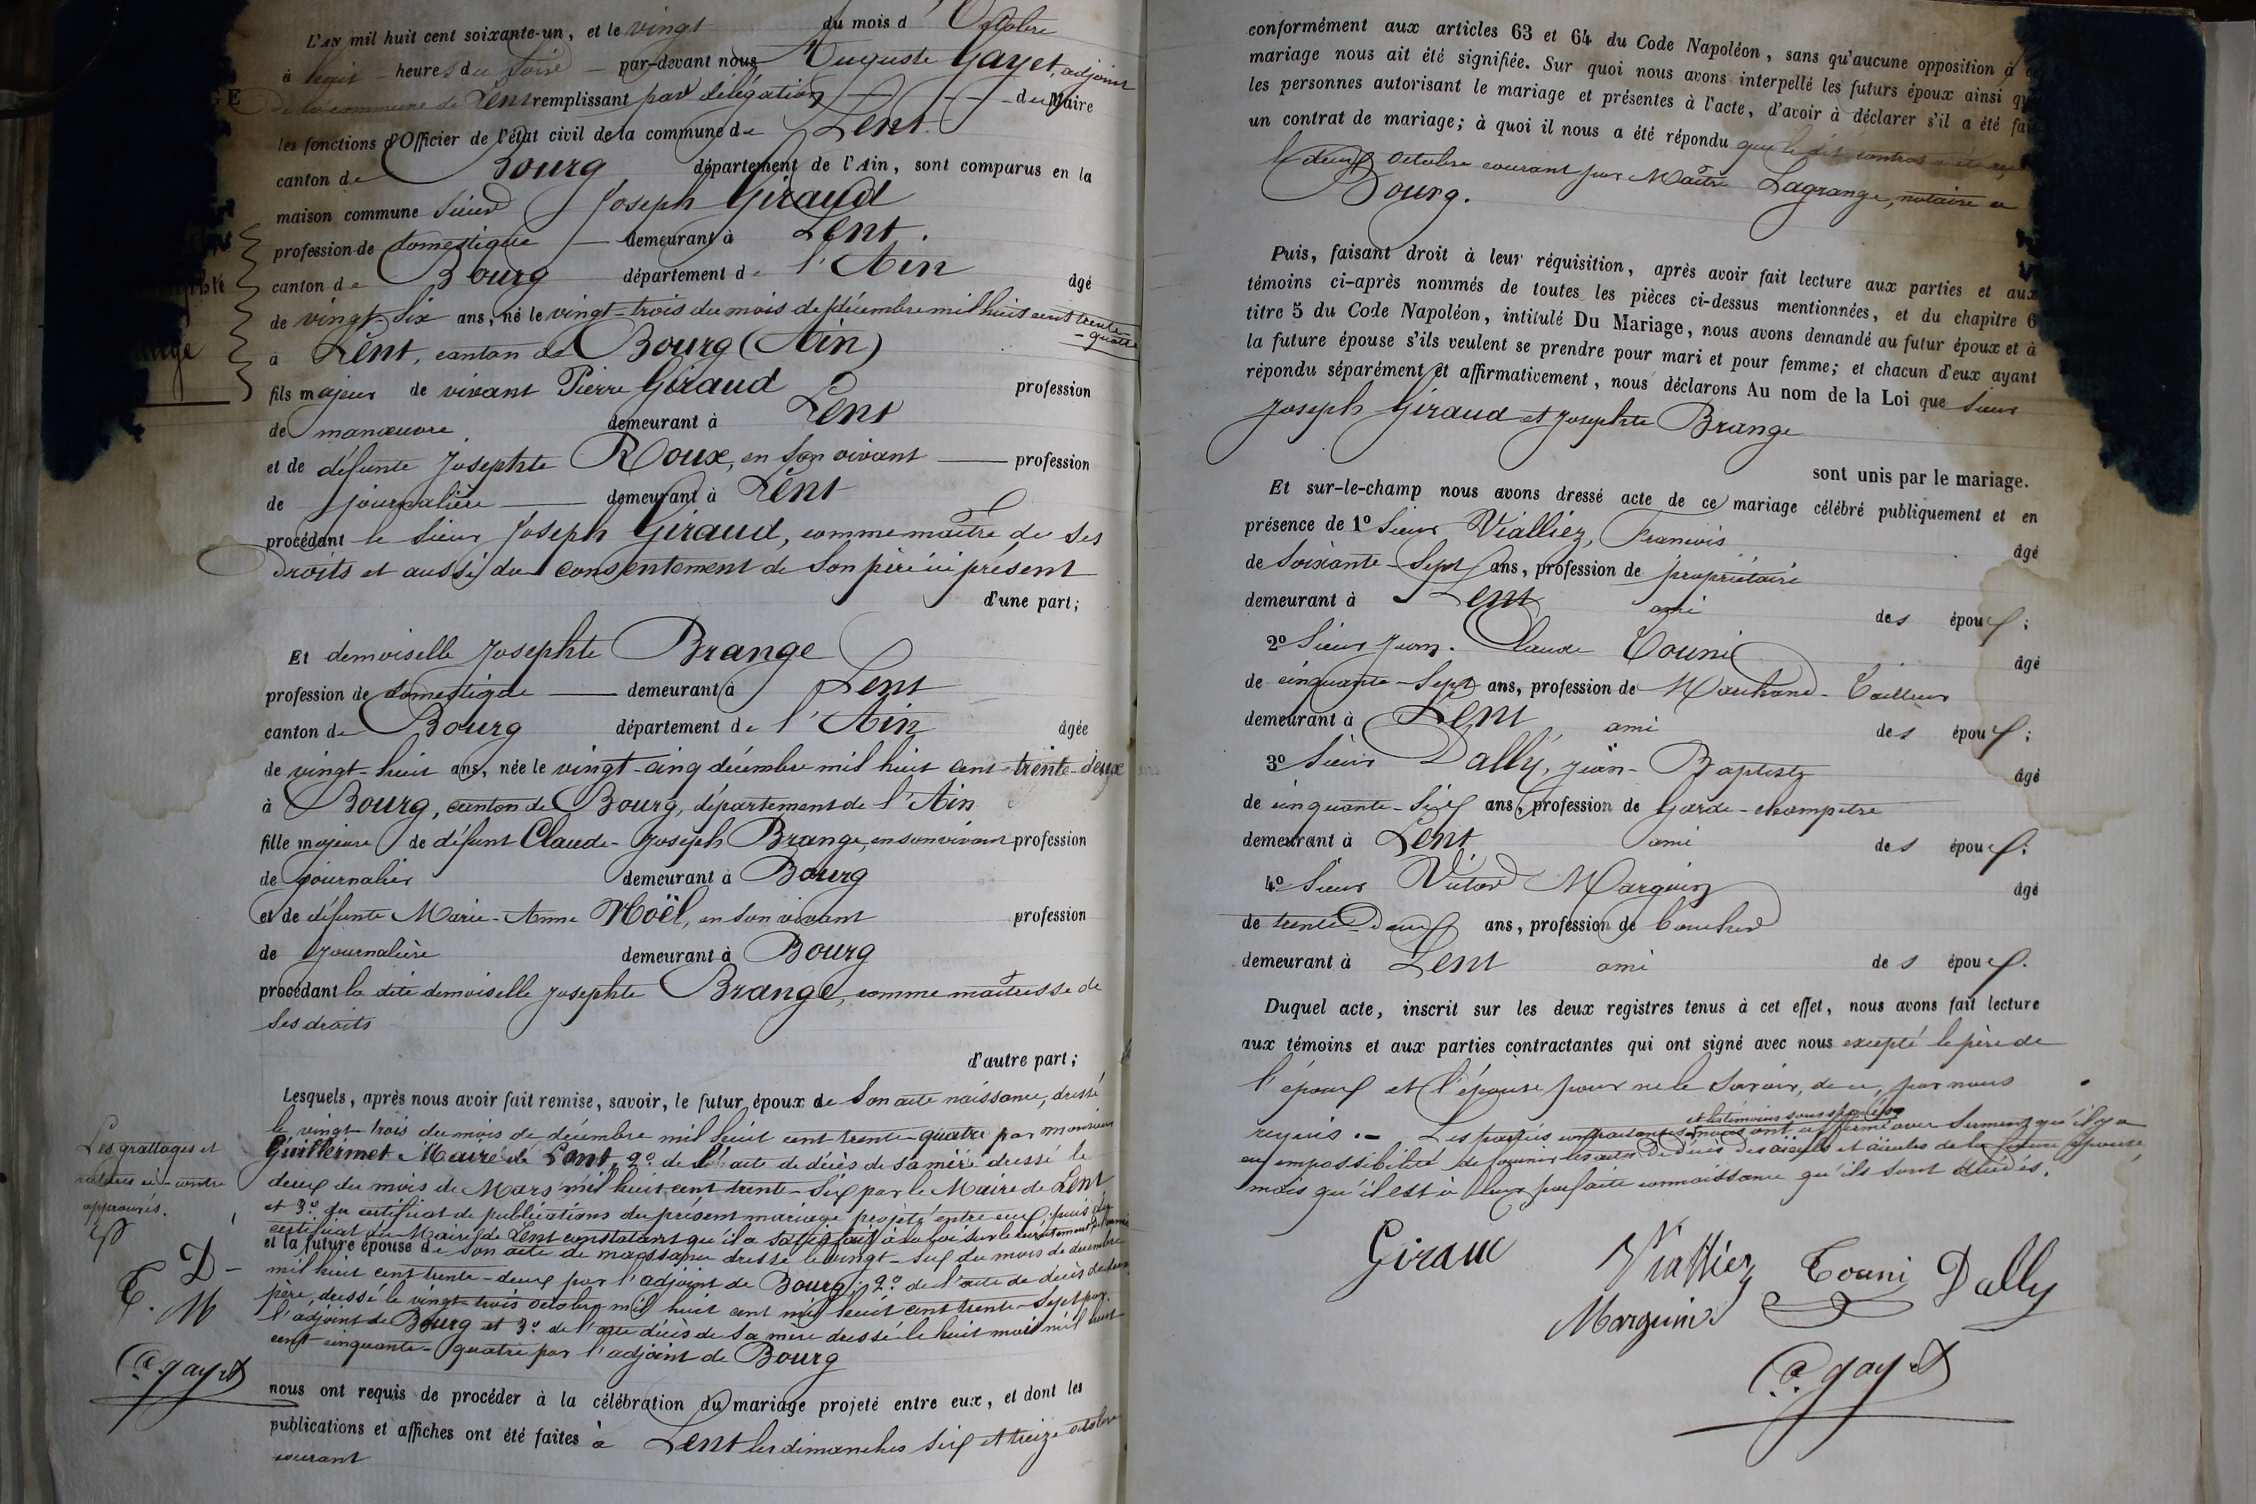 L'AN mil huit cent soixante-un, et le vingt du mois d'Octobre
à huit heures du soir par-devant nous Auguste Gayet, adjoint
de la commune de Lent remplissant par délégation du Maire
les fonctions d'Officier de l'état civil de la commune de Lent
canton de Bourg département de l'Ain, sont comparus en la
maison commune Sieur Joseph Giraud
profession de domestique demeurant à Lent.
canton de Bourg département de l'Ain âgé
de vingt-six ans, né le vingt-trois du mois de décembre mil huit cent trente-
quatre
à Lent, canton de Bourg (Ain)
fils majeur de vivant Pierre Giraud profession
de manœuvre demeurant à Lent
et de défunte Josephte Roux, en son vivant profession
de journalière demeurant à Lent
procédant le Sieur Joseph Giraud, comme maître de ses
droits et aussi du consentement de son père ici présent
d'une part;
Et demoiselle Josephte Brange
profession de domestique demeurant à Lent
canton de Bourg département de l'Ain âgée
de vingt-huit ans, née le vingt-cinq décembre mil huit cent trente-deux
à Bourg, canton de Bourg, département de l'Ain
fille majeure de défunt Claude-Joseph Brange, en son vivant profession
de journalier demeurant à Bourg
et de défunte Marie-Anne Noël, en son vivant profession
de journalière demeurant à Bourg
procédant la dite demoiselle Josephte Brange, comme maîtresse de
ses droits
d'autre part;
Lesquels, après nous avoir fait remise, savoir, le futur époux de Son acte naissance, dressé
le vingt-trois du mois de décembre mil huit cent trente-quatre par monsieur
Guillermet Maire de Lent, 2º de l'acte de décès de sa mère dressé le
deux du mois de Mars mil huit cent trente-six par le Maire de Lent
et 3º du certificat de publications du présent mariage projeté entre eux; puis du
certificat du Maire de Lent constatant qu'il a satisfait à la loi sur le recrutement de l'armée
et la future épouse de son acte de naissance dressé le vingt-six du mois de décembre
mil huit cent trente-deux par l'adjoint de Bourg; 2º de l'acte de décès de son
père, dressé le vingt-trois octobre mil huit cent mil huit cent trente-sept par
l'adjoint de Bourg et 3º de l'acte décès de sa mère dressé le huit mars mil huit
cent cinquante-quatre par l'adjoint de Bourg
nous ont requis de procéder à la célébration du mariage projeté entre eux, et dont les
publications et affiches ont été faites à Lent les dimanches six et treize octobre
courant
Les grattages et
ratures ci-contre
approuvés.
D
T. M
A. Gayet
conformément aux articles 63 et 64 du Code Napoléon, sans qu'aucune opposition à
mariage nous ait été signifiée. Sur quoi nous avons interpellé les futurs époux ainsi que
les personnes autorisant le mariage et présentes à l'acte, d'avoir à déclarer s'il a été fait
un contrat de mariage; à quoi il nous a été répondu que le dit contrat a été
le deux octobre courant par Maître Lagrange, notaire à
Bourg.
Puis, faisant droit à leur réquisition, après avoir fait lecture aux parties et aux
témoins ci-après nommés de toutes les pièces ci-dessus mentionnées, et du chapitre 6
titre 5 du Code Napoléon, intitulé Du Mariage, nous avons demandé au futur époux et à
la future épouse s'ils veulent se prendre pour mari et pour femme; et chacun d'eux ayant
répondu séparément et affirmativement, nous déclarons Au nom de la Loi que Sieur
Joseph Giraud et Josephte Brange
sont unis par le mariage.
Et sur-le-champ nous avons dressé acte de ce mariage célébré publiquement et en
présence de 1º Sieur Vialliez, François âgé
de soixante-sept ans, profession de propriétaire
demeurant à Lent ami des époux;
2º Sieur Jean-Claude Touni âgé
de cinquante-sept ans, profession de Marchand-Tailleur
demeurant à Lent ami des époux;
3º Sieur Dally, Jean-Baptiste âgé
de cinquante-six ans, profession de Garde-champetre
demeurant à Lent ami des époux;
4º Sieur Victor Marguin âgé
de trente-deux ans, profession de boucher
demeurant à Lent ami des époux.
Duquel acte, inscrit sur les deux registres tenus à cet effet, nous avons fait lecture
aux témoins et aux parties contractantes qui ont signé avec nous excepté le père de
l'époux et l'épouse pour ne le savoir, de ce, par nous
et les témoins soussignés
requis. - Les parties contractantes nous ont affirmé avec serment qu'il y a
en impossibilité de fournir les actes de décès des aïeuls et aïeules de la future épouse,
mais qu'il est à leur parfaite connaissance qu'ils sont décédés.
Giraud Vialliez Touni Dally
Marguin
A. Gayet